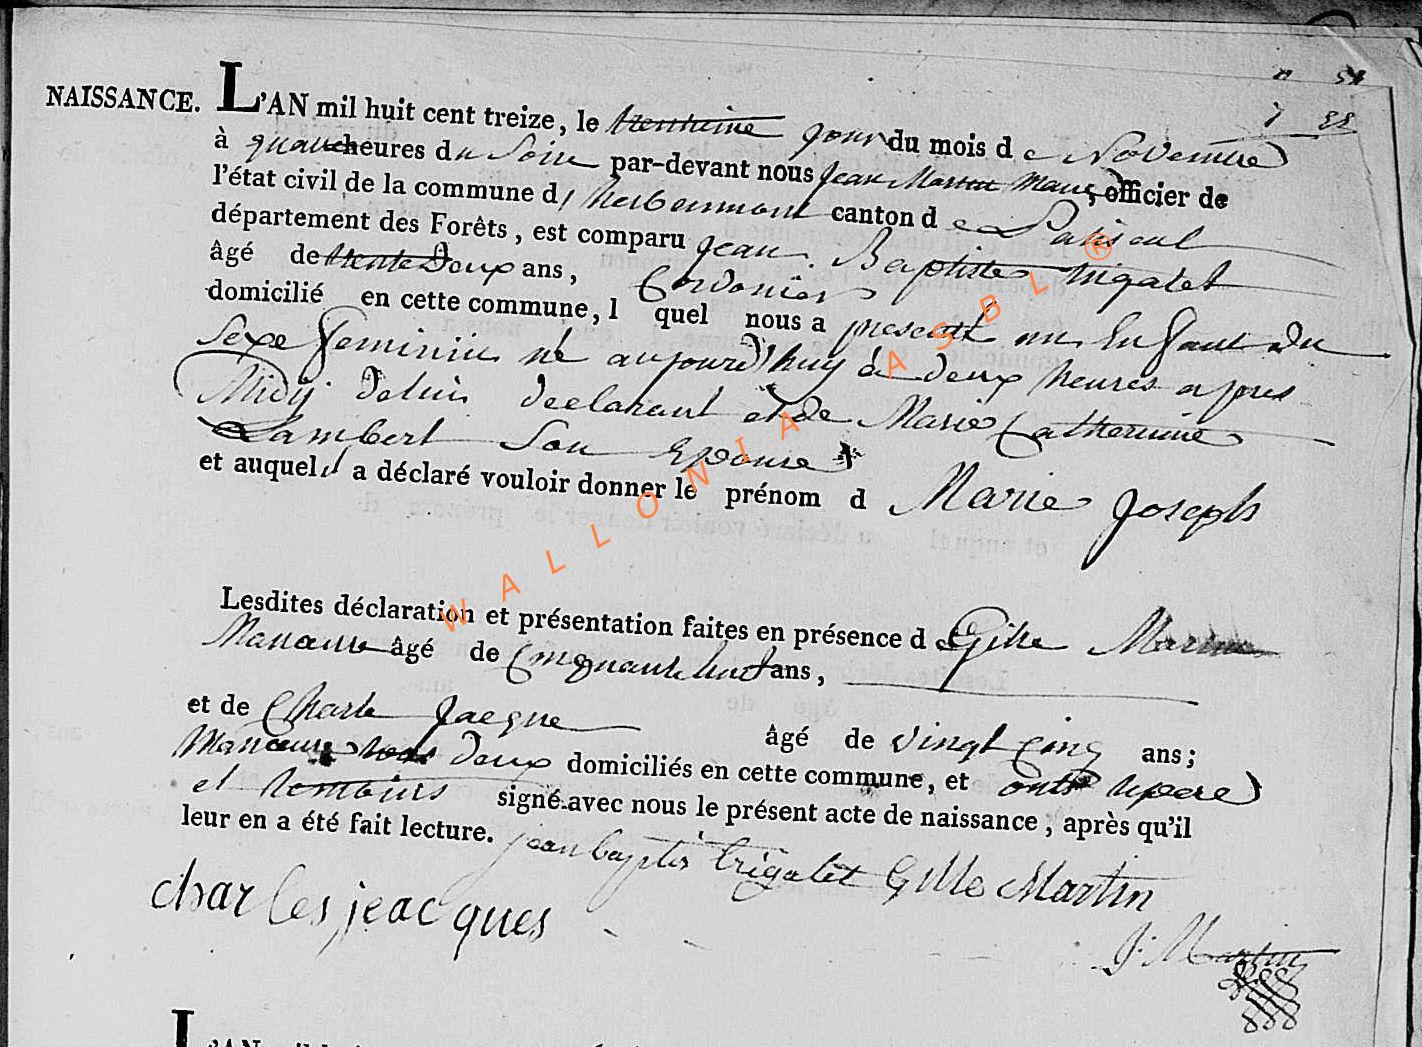 NAISSANCE. L'AN mil huit cent treize, le trentieme jour du mois de Novembre
à quatre heures du Soir par-devant nous Jean Martin Maire, officier de
l'état civil de la commune d'herbeumont canton de Paliseul
département des Forêts, est comparu Jean Baptiste trigalet
âgé de trente Deux ans, Cordonier
domicilié en cette commune, lequel nous a presenté un Enfant du
Sexe feminin né aujourd'huy à deux heures apres
Midy De lui declarant et de Marie Catherinne
Lambert Son Epouse
et auquel il a déclaré vouloir donner le prénom d Marie Joseph
Lesdites déclaration et présentation faites en présence de Gille Martin
Manœuvre âgé de Cinquante huit ans,
et de Charle Jacque âgé de vingt Cinq ans;
Manœuvre tous deux domiciliés en cette commune, et ont le pere
et temoins signé avec nous le présent acte de naissance, après qu'il
leur en a été fait lecture. jean baptis trigalet Gille Martin
charles jeacques
J. Martin
WALLONIA ASBL ®
L'AN